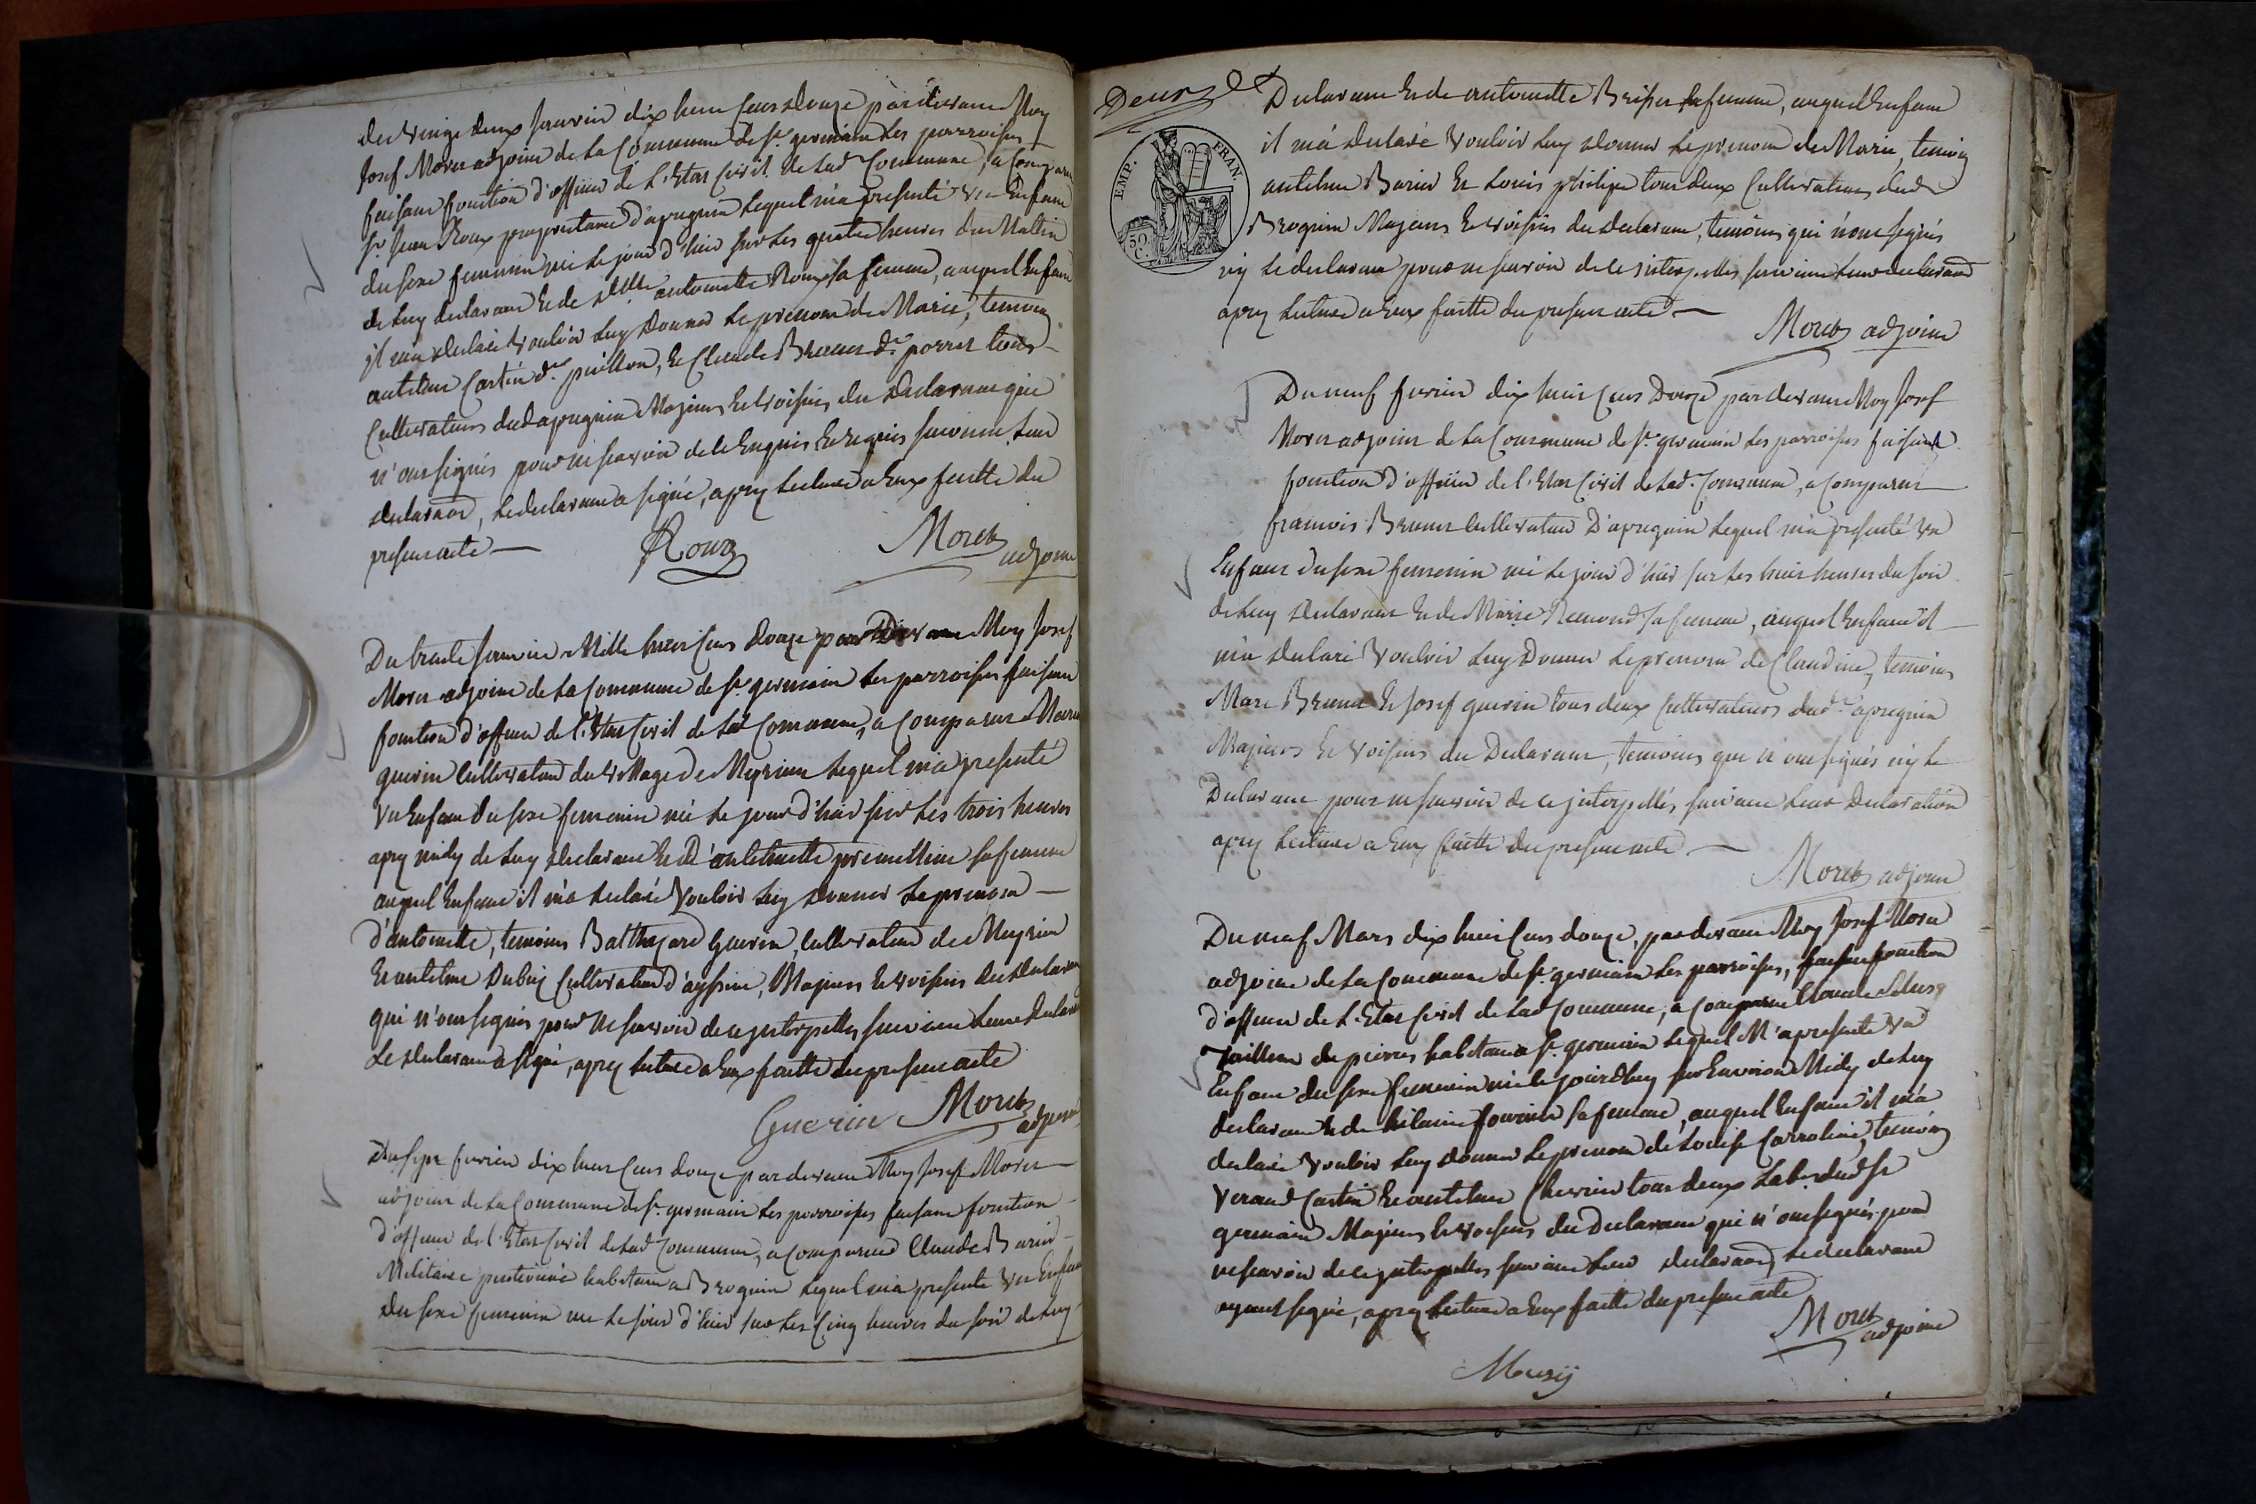 du vingt deux janvier dix huit cent douze par devant Moy
Josef Moret adjoint de la Commune de St. germain les parroisses
faisant fonction d'officier de L'Etat Civil de lad. Commune, a Comparu
Sr. Jean Roux propriétaire d'apregnin lequel m'a presenté un Enfant
du sexe feminin née le jour d'hier sur les quatre heures du Mattin
de luy declarant et de antoinette Roux sa femme, auquel Enfant
jl m'a declaré vouloir luy donner le prenom de Marie, temoins
antelme Castin et Claude Brunet tous
Cultivateurs dud. apregnin Majeurs et voisins du Declarant qui
n'ont signés pour ne savoir de le Enquis suivant leur
declaraon, le declarant a signé, aprez lecture a Eux faitte du
present acte —
Roux
Moret
adjoint
Du trente janvier Mille huit cent douze par Devant Moy Josef
Moret adjoint de la Commune de St. germain les parroisses faisant
fonction d'officier de l'Etat Civil de lad. Commune, a Comparu
guerin Cultivateur du village de Meyrieu lequel m'a presenté
un Enfant du sexe feminin née le jour d'hier sur les trois heures
aprez midy de luy declarant et d'anthelmette sa femme
auquel Enfant il m'a declaré vouloir luy donner le prenom —
d'antoinette, temoins Balthazard Guerin, Cultivateur de Meyrieu
Et antelme Dubuy Cultivateur Majeurs et voisins du declarant
qui n'ont signés pour ne savoir de ce jnterpellés suivant leur declaraon
Le declarant a signé, aprez lecture a Eux faitte du present acte
Guerin
Moret
adjoint
Du sept fevrier dix huit cent douze par devant Moy Josef Moret
adjoint de la Commune de St. germain les parroisses faisant fonction
d'officier de l'Etat Civil de lad. Commune, a comparu Claude Barier
Militaire pentionné habitant a Brognin lequel m'a presenté un Enfant
Du sexe feminin née le jour d'hier sur les Cinq heures du soir de luy
Deux
EMP. FRAN.
50 C.
Declarant Et de antoinette sa femme, auquel Enfant
il m'a declaré vouloir luy donner le prenom de Marie, temoins
antelme Barier et Louis philipe tous deux Cultivateurs dud.
Brognin Majeurs et voisins du declarant, temoins qui n'ont signés
ny le declarant pour ne savoir de ce jnterpellés suivant leur declaraon
aprez lecture a Eux faitte du present acte —
Moret adjoint
Du neuf fevrier dix huit Cent Douze par devant Moy Josef
Moret adjoint de la Commune de St. germain les parroisses faisant
fonction d'officier de l'Etat Civil de lad. Commune, a Comparu
francois Brunet Cultivateur D'apregnin lequel m'a presenté un
Enfant du sexe feminin née le jour d'hier sur les huit heures du soir
de luy declarant et de Marie Remond sa femme, auquel Enfant il
m'a declaré vouloir luy donner le prenom de Claudine, temoins
Marc Brunet et Josef guerin tous deux Cultivateurs dud. apregnin
Majeurs et voisins du Declarant, temoins qui n'ont signés ny le
Declarant pour ne savoir de ce jnterpellés, suivant leur Declaration
aprez lecture a Eux faitte du present acte —
Moret adjoint
Du neuf Mars dix huit Cent douze, par devant Moy Josef Moret
adjoint de la Commune de St. germain les parroisses, faisant fonction
d'officier de L'Etat Civil de lad. Commune, a Comparu Claude
Tailleur de pierres habitant a St. germain lequel M'a presenté un
Enfant du sexe feminin née le jourdhuy sur Environ Midy de luy
declarant et de hilaire fournier sa femme, auquel Enfant il m'a
declaré vouloir luy donner le prenom de Louise Carroline, temoins
Castin et antelme Chevrier tous deux Labr. dud. St
germain Majeurs et voisins du Declarant qui n'ont signés pour
ne savoir de ce jnterpellés suivant leur declaraon, le declarant
ayant signé, aprez lecture a Eux faitte du present acte
Moret
adjoint